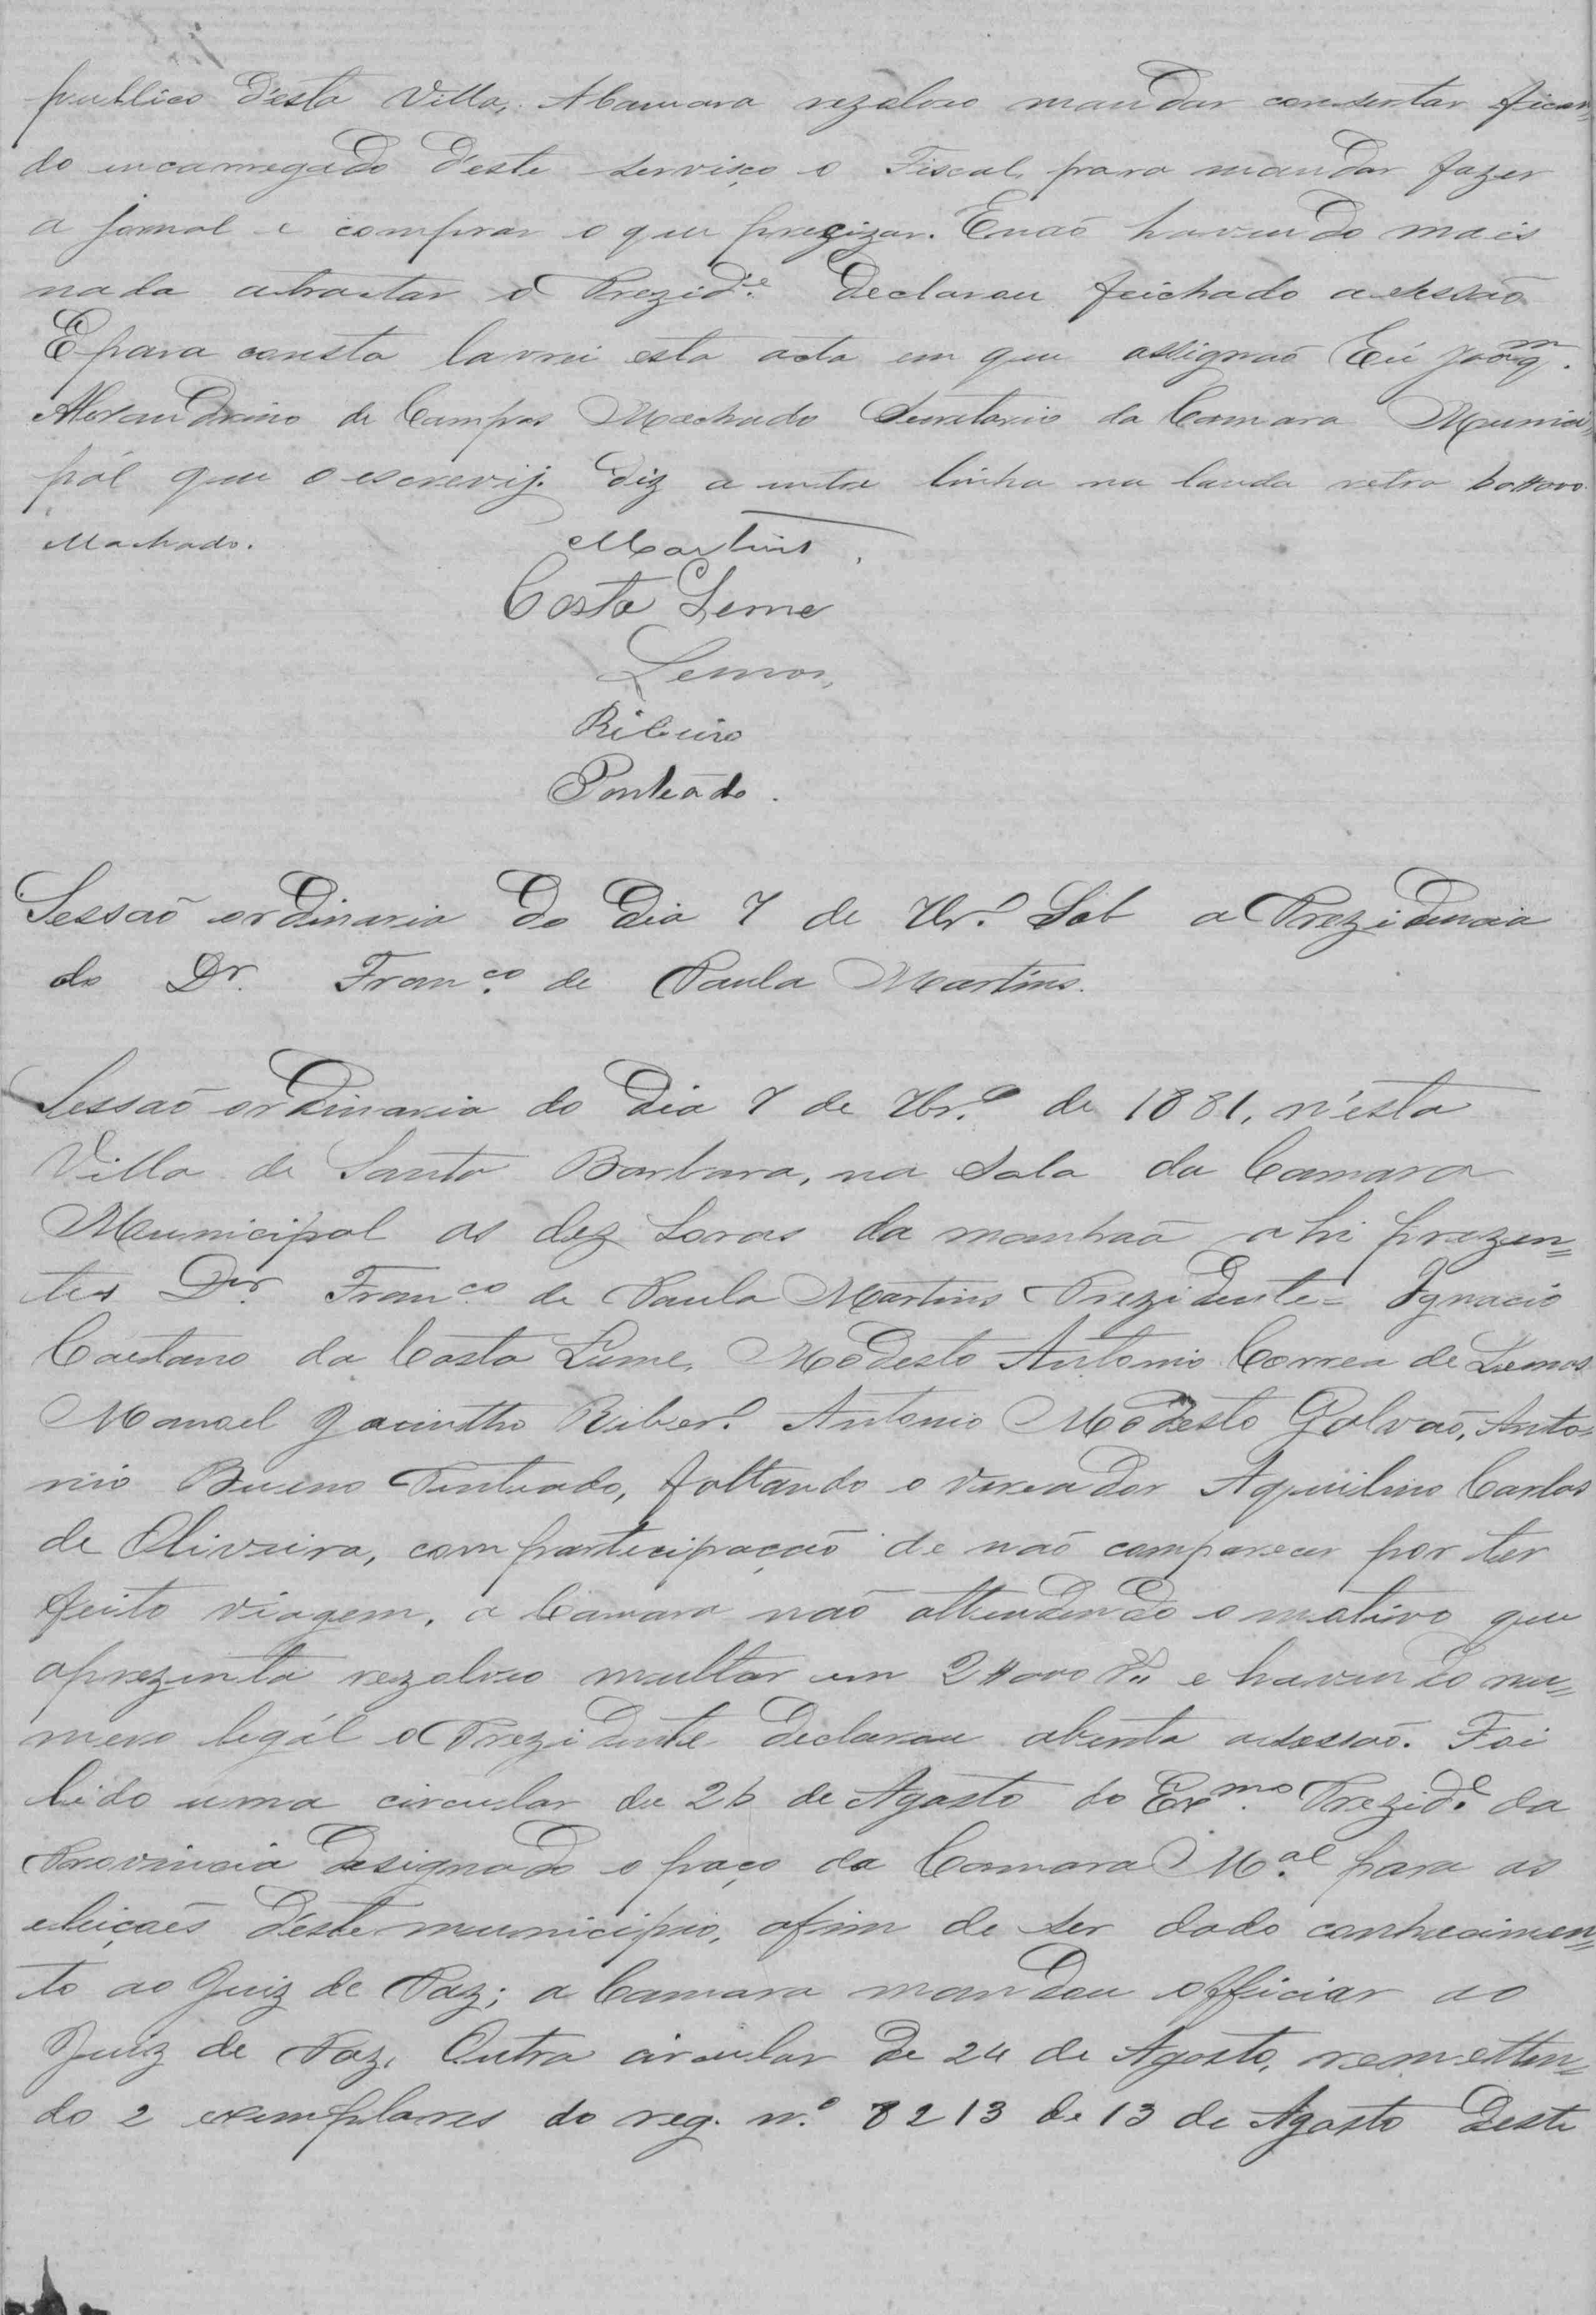 publico d'esta Villa, A Camara rezolveo mandar consertar fican=
do encarregado d'este serviço o Fiscal, para mandar fazer
a jornal e comprar o que precizar. E naõ havendo mais
nada atractar o Prezid.e declarou feichado a sessaõ
E para consta lavrei esta acta em que assignaõ Eú Joaq.m
Alexandrino de Campos Machado Secretario da Camara Munici=
pál que o escrevij. Diz a entre linha na lauda retro
Machado. Martins
Costa Leme
Lemos,
Ribeiro
Penteádo.
Sessaõ ordinaria do dia 7 de 7br.o Sob a Prezidencia
do Dr. Fran.co de Paula Martins.
Sessaõ ordinaria do dia 7 de 7br.o de 1881, n'esta
Villa de Santa Barbara, na Sala da Camara
Municipal as dez horas da manhaã ahi prezen=
tes Dr. Fran.co de Paula Martins Prezidente= Ignacio
Caetano da Costa Leme, Modesto Antonio Correa de Lemos
Manoel Jacintho Riber.o Antonio Modesto Galvaõ, Anto=
nio Bueno Penteado, faltando o vereador Aquilino Carlos
de Oliveira, com participaçaõ de naõ comparecer por ter
feito viagem, a Camara naõ attendendo o motivo que
aprezenta rezolveo multar em 2#000 e havendo nu=
mero legál o Prezidente declarou aberta a sessaõ. Foi
lido uma circular de 26 de Agosto do Ex.mo Prezid.e da
Provincia designado o paço da Camara M.al para as
eleiçoẽs d'este municipio, afim de ser dado conhecimen=
to ao Juiz de Paz; a Camara mandou officiar ao
Juiz de Paz. Outra circular de 24 de Agosto, remetten=
do 2 exemplares do reg. n.o 8213 de 13 de Agosto deste